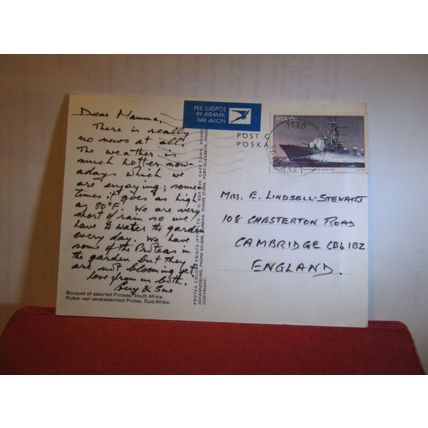 Dear Mamma,
There is really
no news at all!
The weather is
much hotter now-
adays which we
are enjoying; some
times it goes as high
as 80°F. We are very
short of rain so we
have to water the garden
every day. We have
some of the Proteas in
the garden but they
are not blooming yet.
love from us both.
& Sue
Bouquet of assorted Proteas, South Africa.
Ruiker van verskeidenheid Protea, Suid-Afrika.
PER LUGPOS
BY AIRMAIL
PAR AVION
POST C
POSKA
MRS. E. LINDSELL-STEWART
108 CHASTERTON ROAD
CAMBRIDGE CB4 1BZ
ENGLAND.